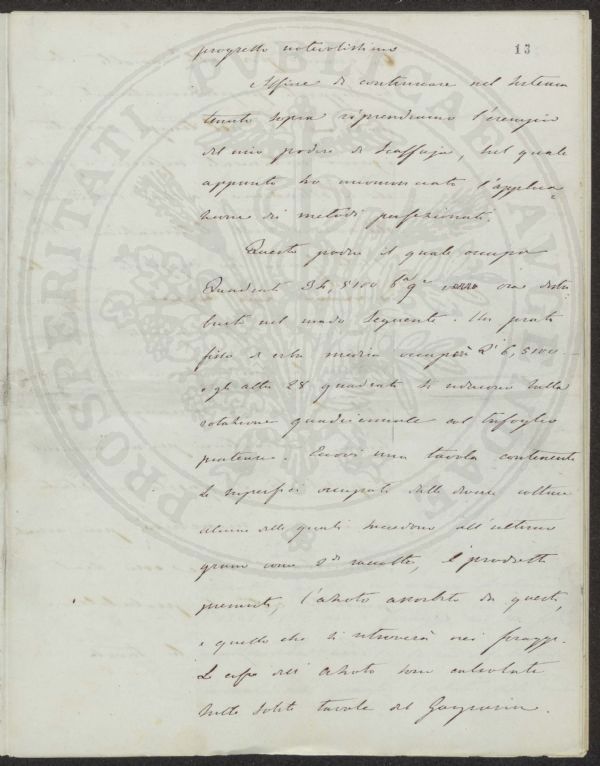 13
progetto notevolissimo
Affine di continuare nel sistema
tenuto sopra riprendiamo l'esempio
del mio podere di Scaffaja, sul quale
appunto ho incominciato l'applica=
zione dei metodi perfezionati.
Questo podere il quale occupa
Quadrati 34, 5100 b.a q.e ora distri
buiti nel modo seguente. Un prato
fisso di erba medica occuperà Q.i 6, 5100
e gli altri 28 quadrati si riducono sulla
rotazione quadriennale col trifoglio
pratense. Eccovi una tavola contenente
Le superfici occupate dalle diverse colture
alcune delle quali succedono all'ultimo
grano come 2.di raccolti, i prodotti
presunti, l'azoto assorbito da questi,
e quello che si ritroverà nei foraggi.
Le cifre dell'azoto sono calcolate
sulle solite tavole del Gasparin.
PROSPERITATI PUBLICAE AUGENDAE